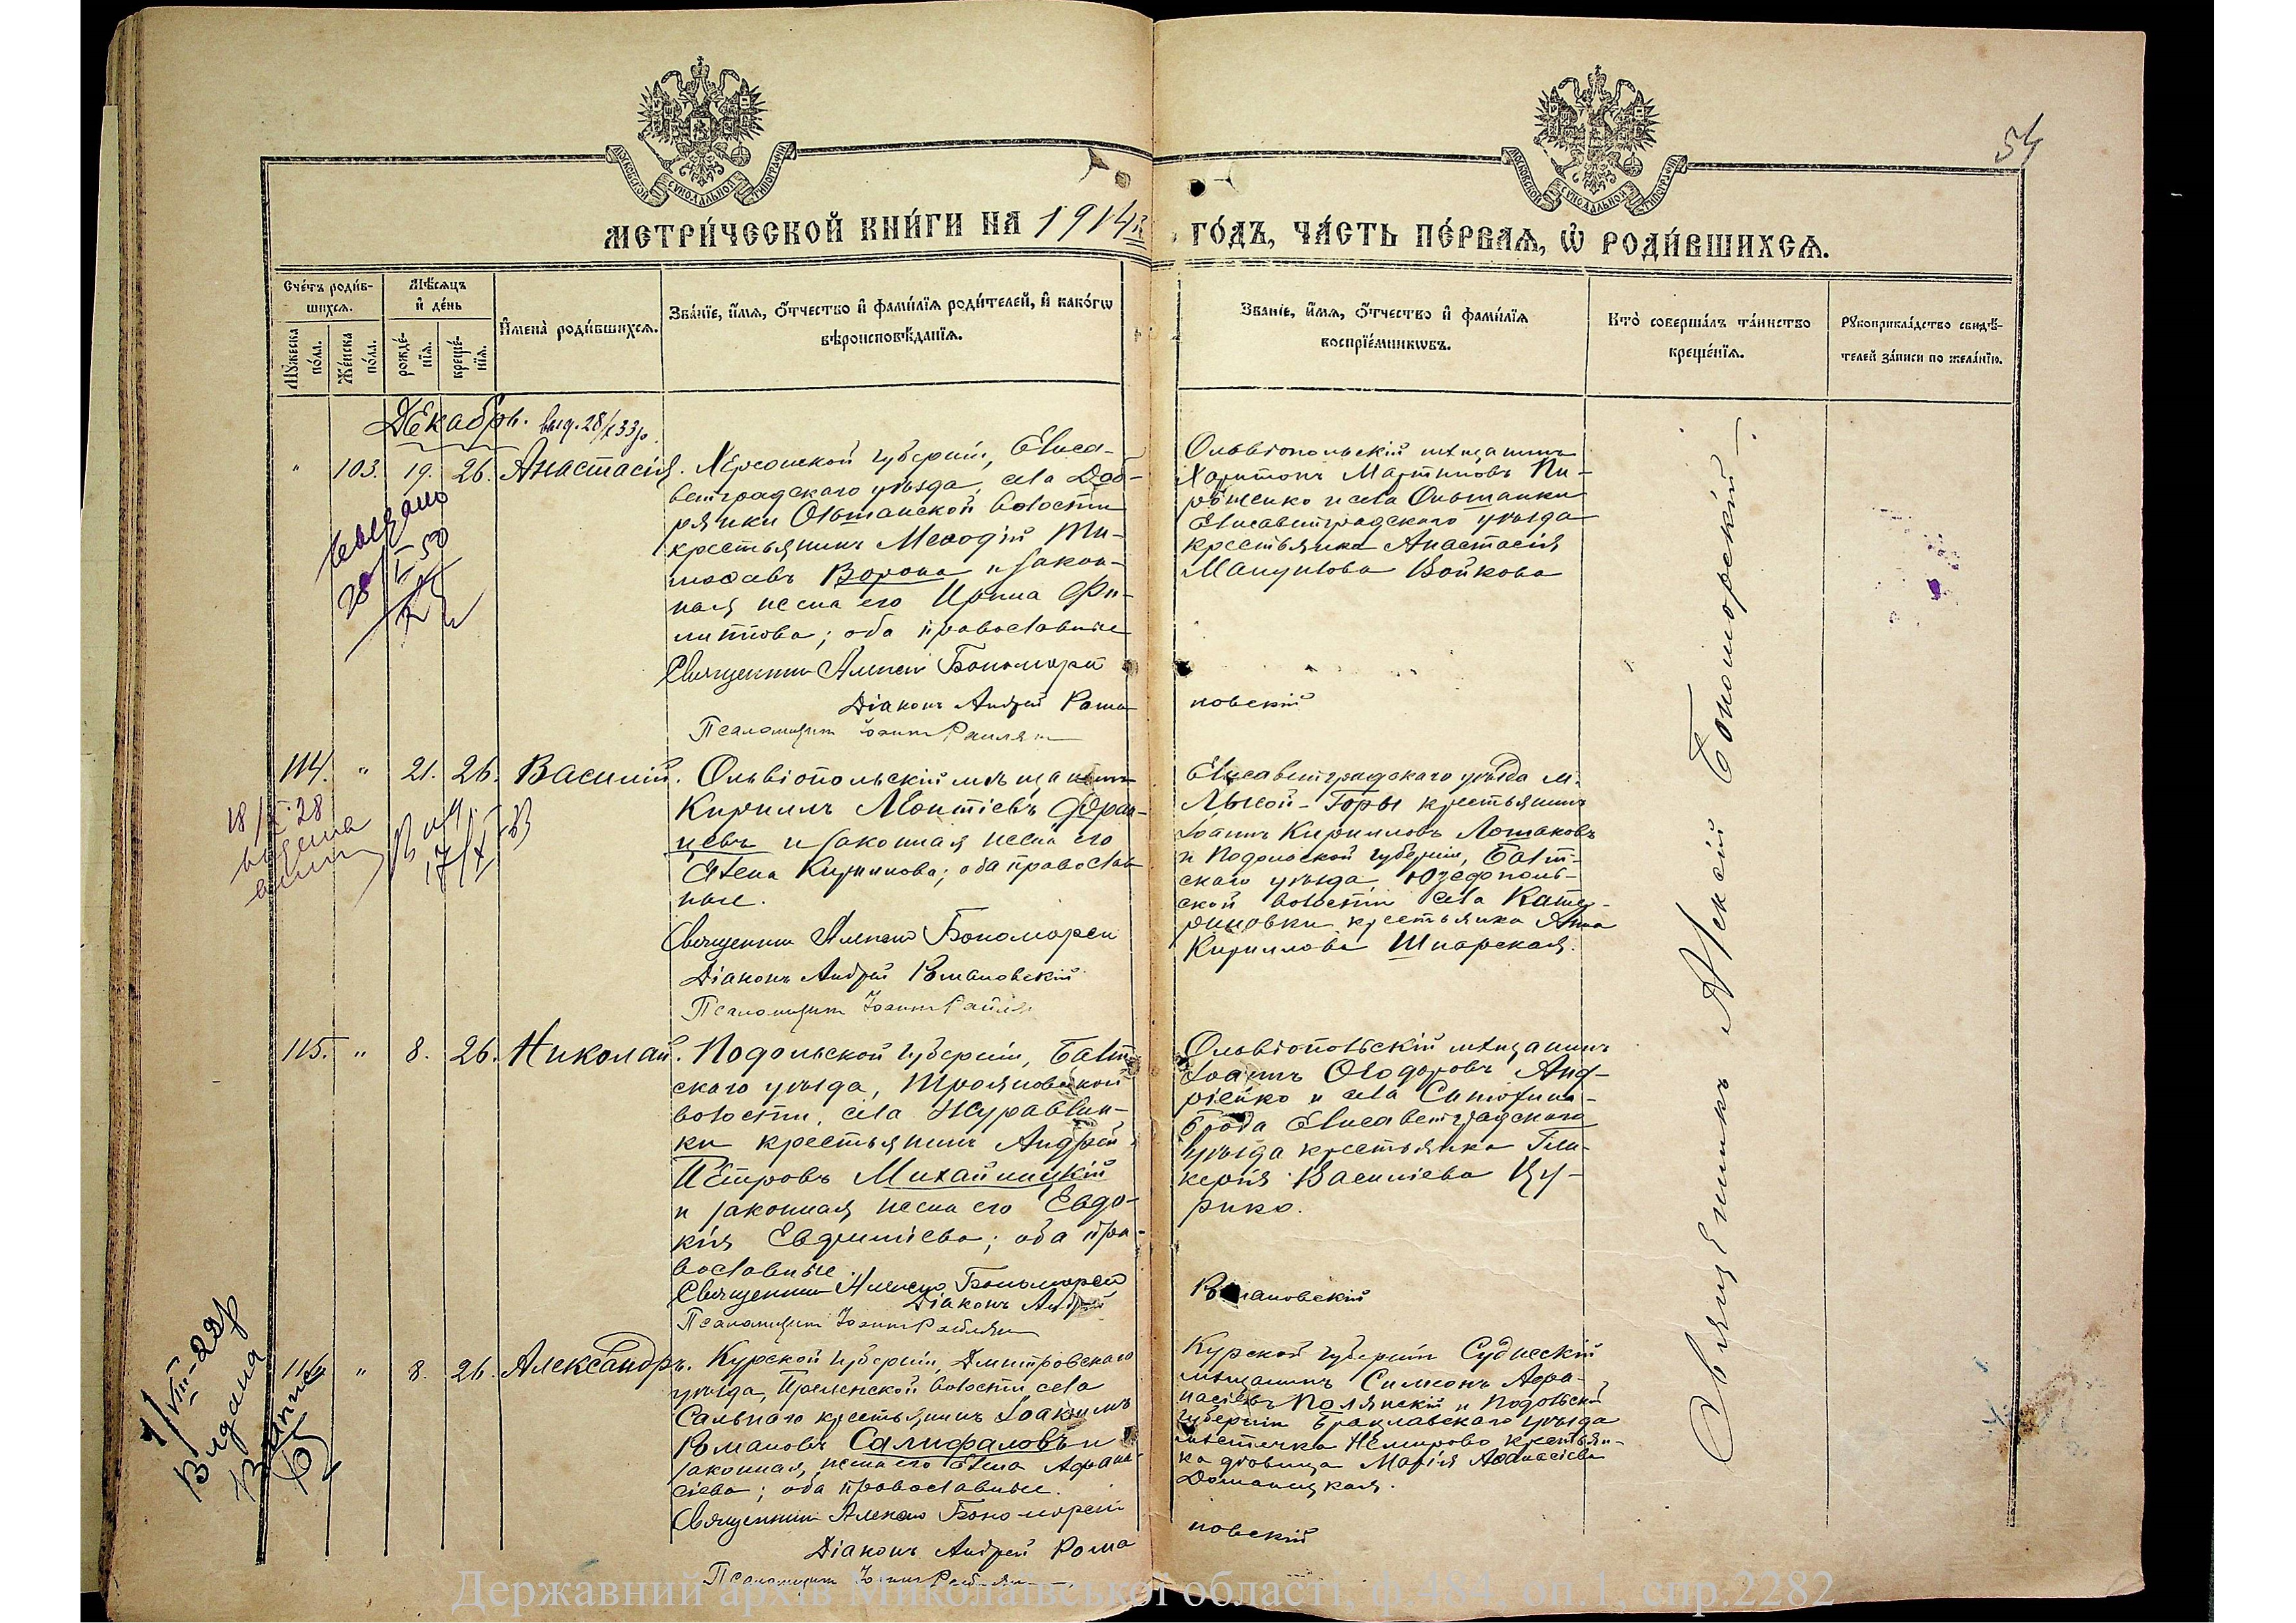 54
МОСКОВСКОЙ СѴНОДАЛЬНОЙ ТИПОГРАФІИ
МОСКОВСКОЙ СѴНОДАЛЬНОЙ ТИПОГРАФІИ
МЕТРИ́ЧЕСКОЙ КНИ́ГИ НА 1914 ГО́ДЪ, ЧА́СТЬ ПЕ́РВАѦ, Ѽ РОДИ́ВШИХСѦ.
Сче́тъ роди́в-
шихсѧ.
Мꙋ́жеска по́ла.
Же́нска по́ла.
Мѣ́сѧцъ
и҆ де́нь
рожде́-
нїѧ.
креще́-
нїѧ.
И҆мена̀ роди́вшихсѧ.
Зва́нїе, и҆́мѧ, ѻ҆́тчество и҆ фами́лїѧ роди́телей, и҆ како́гѡ
вѣроисповѣ́данїѧ.
Зва́нїе, и҆́мѧ, ѻ҆́тчество и҆ фами́лїѧ
воспрїе́мникѡвъ.
Кто̀ соверша́лъ та́инство
креще́нїѧ.
Рꙋкоприкла́дство свидѣ́-
телей за́писи по жела́нїю.
Декабрь.
" 103. 19. 26. Анастасія. Херсонской губерніи, Елиса-
ветградскаго уѣзда, села Доб-
рянки Ольшанской волости
крестьянинъ Меѳодій Ти-
моѳеевъ Ворона и закон-
ная жена его Ирина Фи-
липпова; оба православные
Священникъ Алексій Бономорскій
Діаконъ Андрей Рома
новскій
Псаломщикъ Іоаннъ
Ольвіопольскій мѣщанинъ
Харитонъ Мартиновъ Пи-
роженко и села Ольшанки
Елисаветградскаго уѣзда
крестьянка Анастасія
Мануилова Войкова
114. " 21. 26. Василій. Ольвіопольскій мѣщанинъ
Кириллъ Леонтіевъ Фран-
цевъ и законная жена его
Елена Кириллова; оба православ
ные.
Священникъ Алексій Бономорскій
Діаконъ Андрей Романовскій
Псаломщикъ Іоаннъ
Елисаветградскаго уѣзда м.
Лысой-Горы крестьянинъ
Іоаннъ Кирилловъ Лошаковъ
и Подольской губерніи, Балт-
скаго уѣзда, Юзефполь-
ской волости села Кате-
риновки крестьянка Анна
Кириллова Шпарская.
115. " 8. 26. Николай. Подольской губерніи, Балт-
скаго уѣзда, Трояновской
волости, села Журавлин-
ки крестьянинъ Андрей
Петровъ Михайлицкій
и законная жена его Евдо-
кія Евфиміева; оба пра-
вославные.
Священникъ Алексій Бономорскій
Діаконъ Андрей
Романовскій
Псаломщикъ Іоаннъ
Ольвіопольскій мѣщанинъ
Іоаннъ Ѳеодоровъ Анд-
ріенко и села Синюхина-
Брода Елисаветградскаго
уѣзда крестьянка Гли-
керія Василіева Цу-
рико.
116 " 8. 26. Александръ. Курской губерніи, Дмитровскаго
уѣзда, волости, села
Сальнаго крестьянинъ Іоакимъ
Романовъ Салифаловъ и
законная жена его Елена Афана-
сіева; оба православные.
Священникъ Алексій Бономорскій
Діаконъ Андрей Рома
новскій
Псаломщикъ Іоаннъ
Курской губерніи Суджескій
мѣщанинъ Симеонъ Афа-
насіевъ Полянскій и Подольской
губерніи Брацлавскаго уѣзда
мѣстечка Немирово крестьян-
ка дѣвица Марія Аѳанасіева
Доманицкая.
Священникъ Алексій Бономорскій
18/X-28
17/X-33
1/VIII-22р
Видана
Державний архів Миколаївської області, ф.484, оп.1, спр.2282